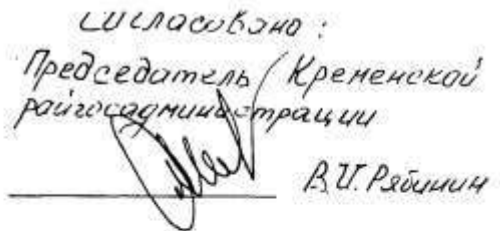 Согласовано:
Председатель Кременской
райгосадминистрации
В.И. Рябинин